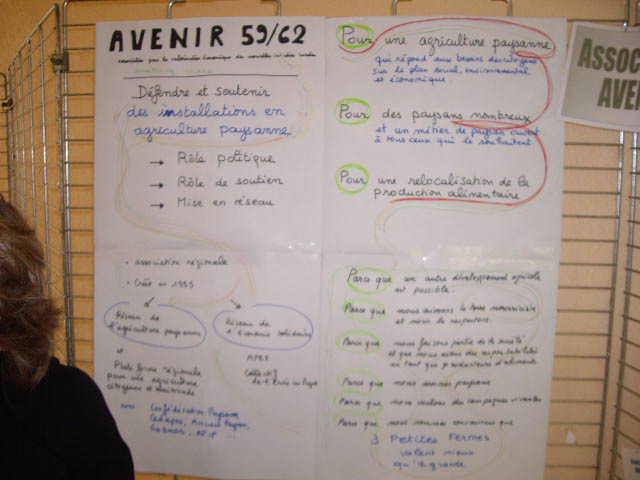 AVENIR 59/62
Défendre et soutenir
des installations en
agriculture paysanne
→ Rôle politique
→ Rôle de soutien
→ Mise en réseau
• association régionale
• Créée en 1995
Réseau de
l'agriculture paysanne
Réseau de
l'Economie solidaire
et
Plate forme régionale
pour une agriculture
citoyenne et
APES
De l'Ecrit au Projet
avec Confédération Paysanne,
Cedapas, Accueil Paysan,
Gabnor, AFIP ...
Pour une agriculture paysanne
qui répond aux besoins des citoyens
sur le plan social, environnemental
et économique.
Pour des paysans nombreux
et un métier de paysan ouvert
à tous ceux qui le souhaitent
Pour une relocalisation de la
production alimentaire
Parce que un autre développement agricole
est possible.
Parce que nous aimons la terre nourricière
et nous la respectons
Parce que nous faisons partie de la société
et que nous avons des responsabilités
en tant que producteurs d'aliments
Parce que nous sommes paysans
Parce que nous voulons des campagnes vivantes
Parce que nous sommes convaincus que
3 Petites Fermes
valent mieux
qu'1 grande
ASSOC
AVE